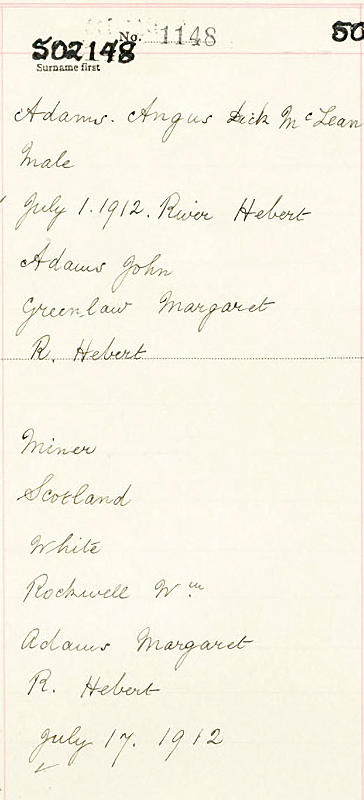 No. 1148
S02148
50
Surname first
Adams. Angus Dick McLean
Male
July 1. 1912. River Hebert
Adams John
Greenlaw Margaret
R. Hebert
Miner
Scotland
White
Rockwell Wm
Adams Margaret
R. Hebert
July 17. 1912